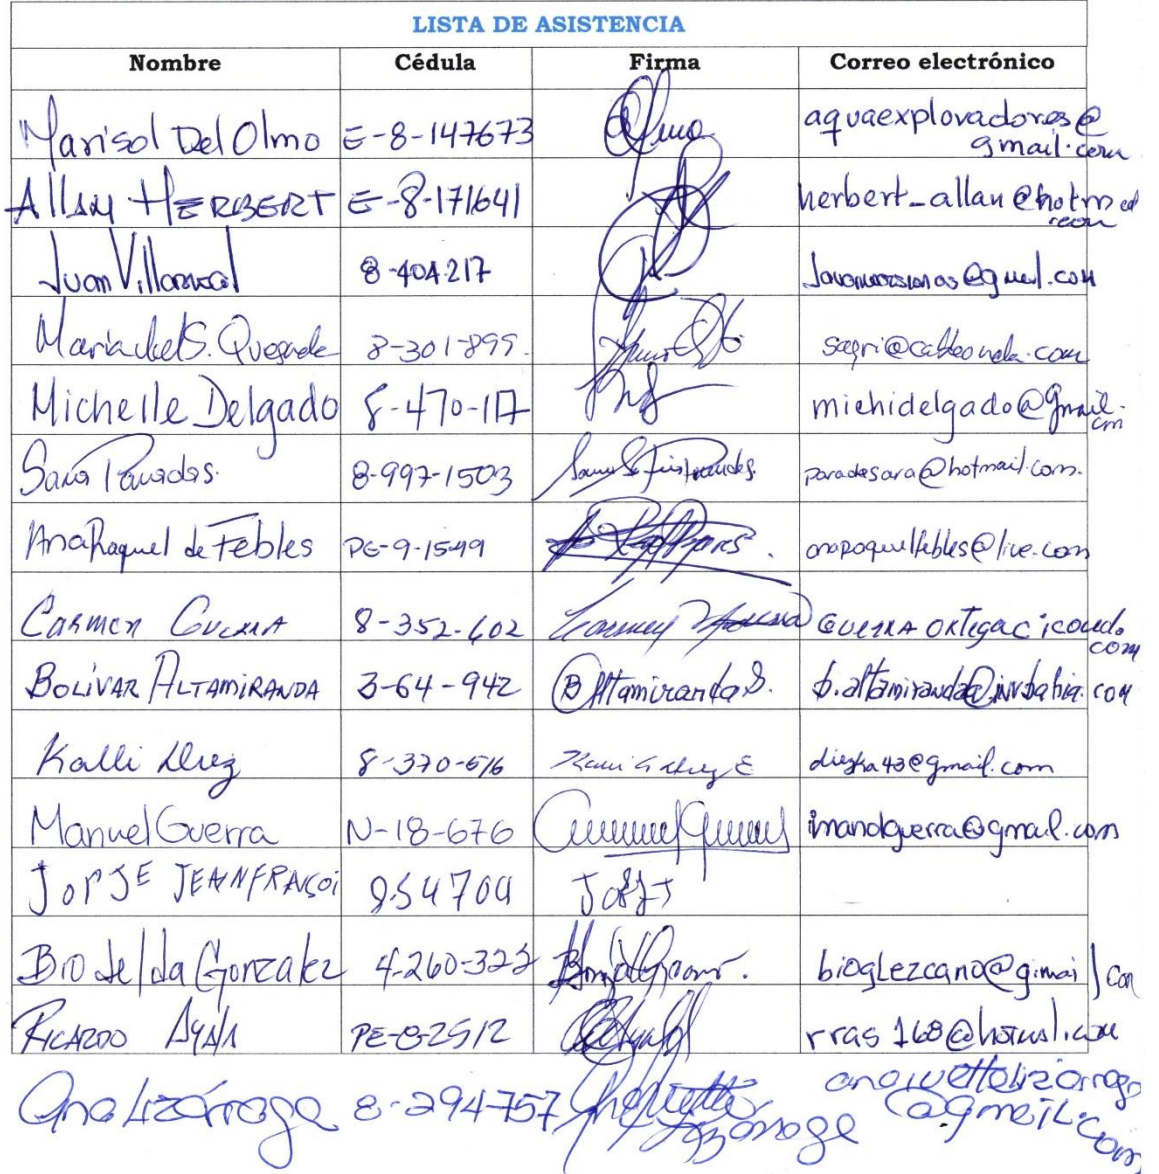 LISTA DE ASISTENCIA
Nombre Cédula Firma Correo electrónico
Marisol Del Olmo E-8-147673 aquaexploradores@
gmail.com
Allan HERBERT E-8-171641 herbert_allan@hotmail
.com
Juan Villarreal 8-404-217 @gmail.com
Maria del S. Quesada 8-301-899 sagri@cableonda.com
Michelle Delgado 8-470-117 michidelgado@gmail.
cm
Sara Paradas. 8-997-1503 paradasara@hotmail.com.
Ana Raquel de Febles PE-9-1549 anaraquelfebles@live.com
CARMEN GUERRA 8-352-602 GUERRA ORTEGAC icoud.
COM
BOLIVAR ALTAMIRANDA 3-64-942 B Altamiranda S. b.altamiranda@invbahia.com
Kalli Diez 8-370-676 diezka43@gmail.com
Manuel Guerra N-18-676 imanolguerra@gmail.com
JORJE JEANFRANÇOI 954704 JOSJJ
Brodelda Gonzalez 4-260-323 bioglezcano@gimail con
RICARDO AyAlA PE-8-2512 rras168@hotmail.com
Ana Lizárraga 8-294-757 anaivettelizarraga
@gmail.com